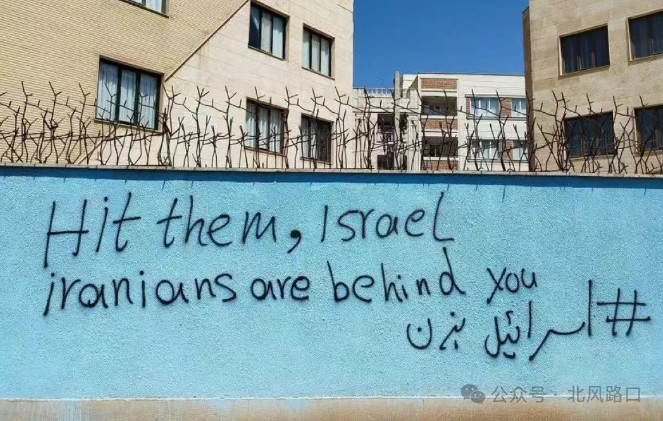 Hit them, Israel
iranians are behind you
#اسرائیل بزن
公众号 · 北风路口